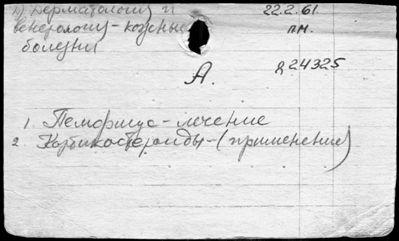 1) Дерматология и
венеролог - кожные
болезни
22.2.61
пн.
А.
Д24325
1. Пемфигус - лечение
2 Кортикостероиды - (применение)